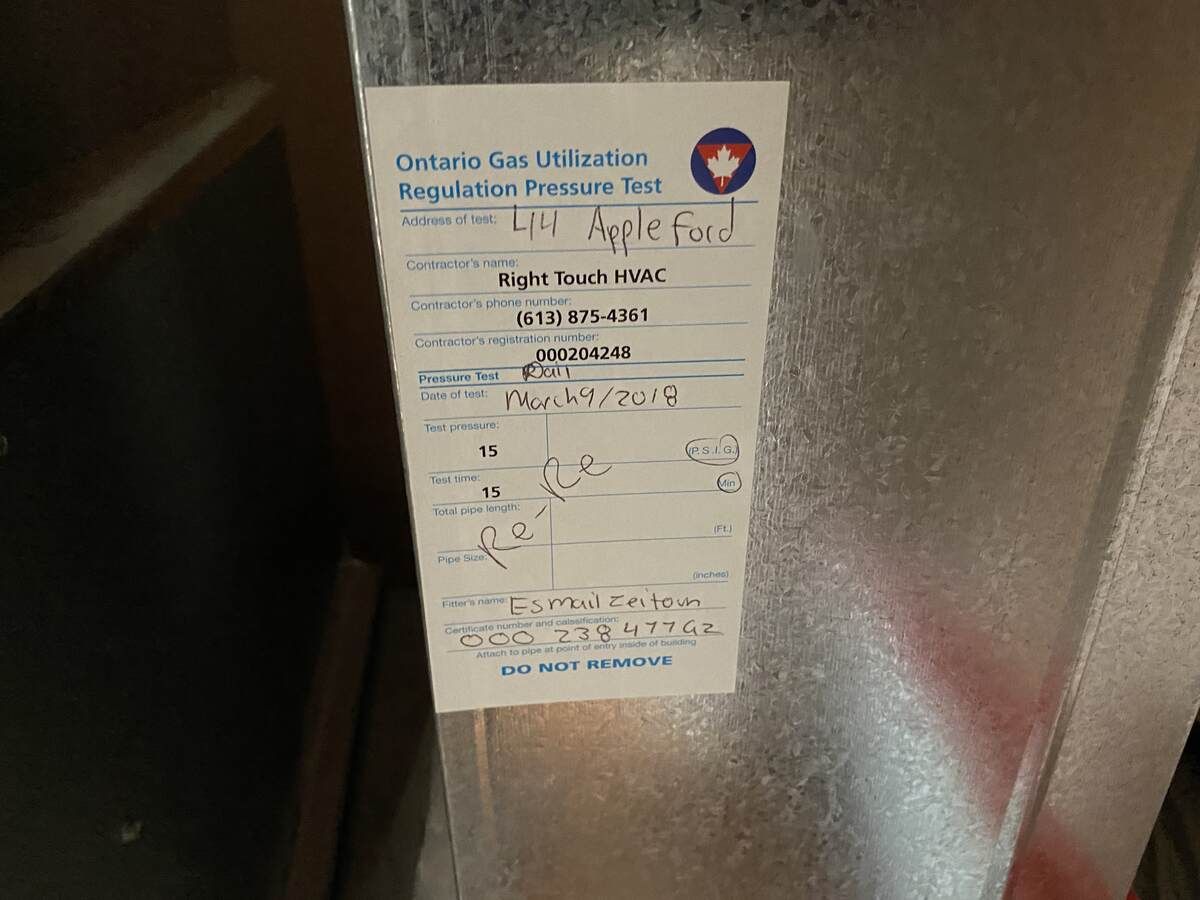 Ontario Gas Utilization
Regulation Pressure Test
Address of test: 414 Apple ford
Contractor's name:
Right Touch HVAC
Contractor's phone number:
(613) 875-4361
Contractor's registration number:
000204248
Pressure Test
Date of test: March 9/2018
Test pressure:
15 (P.S.I.G.)
Re
Test time:
15 Min
Total pipe length:
Re (Ft.)
Pipe Size:
(inches)
Fitter's name: Esmail Zeitoun
Certificate number and calssification:
000 23847762
Attach to pipe at point of entry inside of building
DO NOT REMOVE